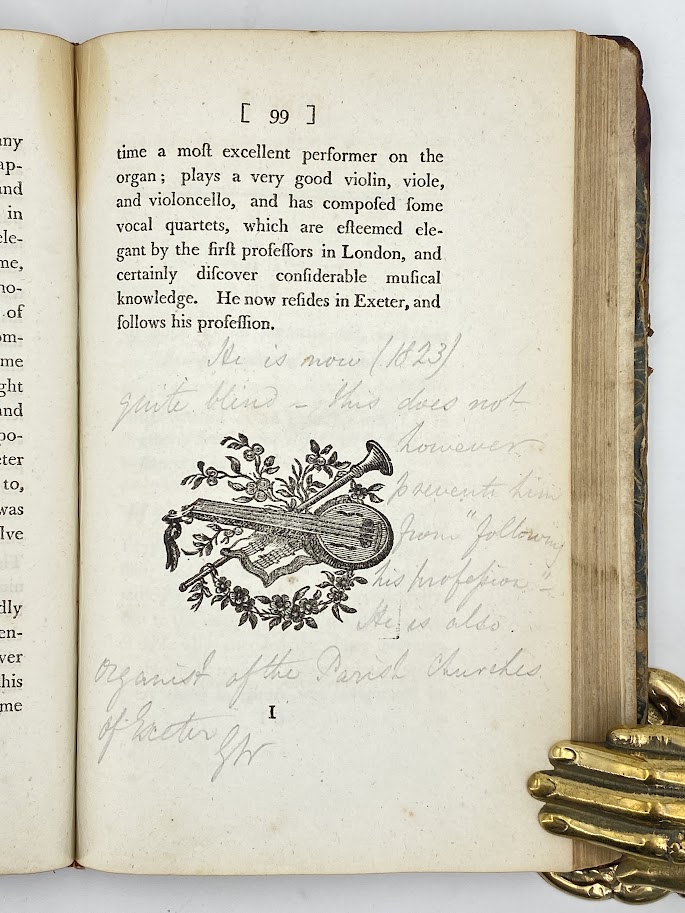 any
ap-
and
in
ele-
me,
no-
of
om-
me
ght
and
po-
eter
to,
was
lve
dly
en-
ver
this
me
[ 99 ]
time a moſt excellent performer on the
organ; plays a very good violin, viole,
and violoncello, and has compoſed ſome
vocal quartets, which are eſteemed ele-
gant by the firſt profeſſors in London, and
certainly diſcover conſiderable muſical
knowledge. He now reſides in Exeter, and
follows his profeſſion.
He is now (1823)
quite blind – this does not
however
prevent him
from "following
his profeſsion" –
He is also
organist of the Parish Churches
of Exeter GW
I